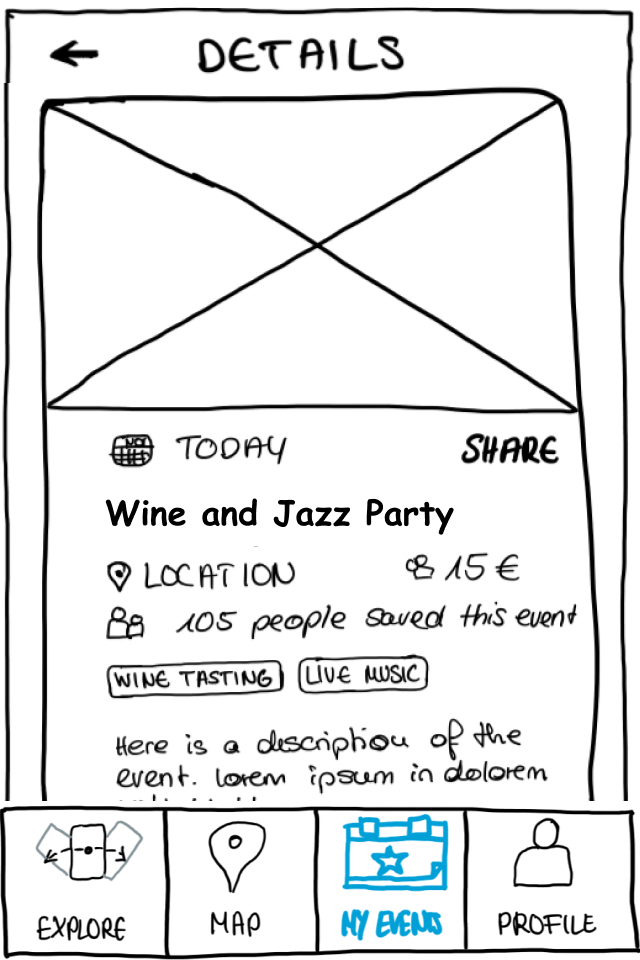 DETAILS
TODAY SHARE
Wine and Jazz Party
LOCATION 15 €
105 people saved this event
WINE TASTING LIVE MUSIC
Here is a description of the
event. Lorem ipsum in dolorem
EXPLORE MAP MY EVENTS PROFILE